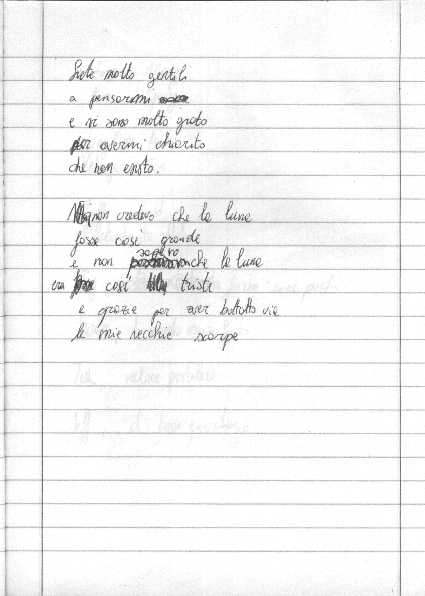 Siete molto gentili
a pensarmi
e vi sono molto grato
per avermi chiarito
che non esisto.
non credevo che la luna
fosse così grande
e non sapevo che la luna
era così triste
e grazie per aver buttato via
le mie vecchie scarpe